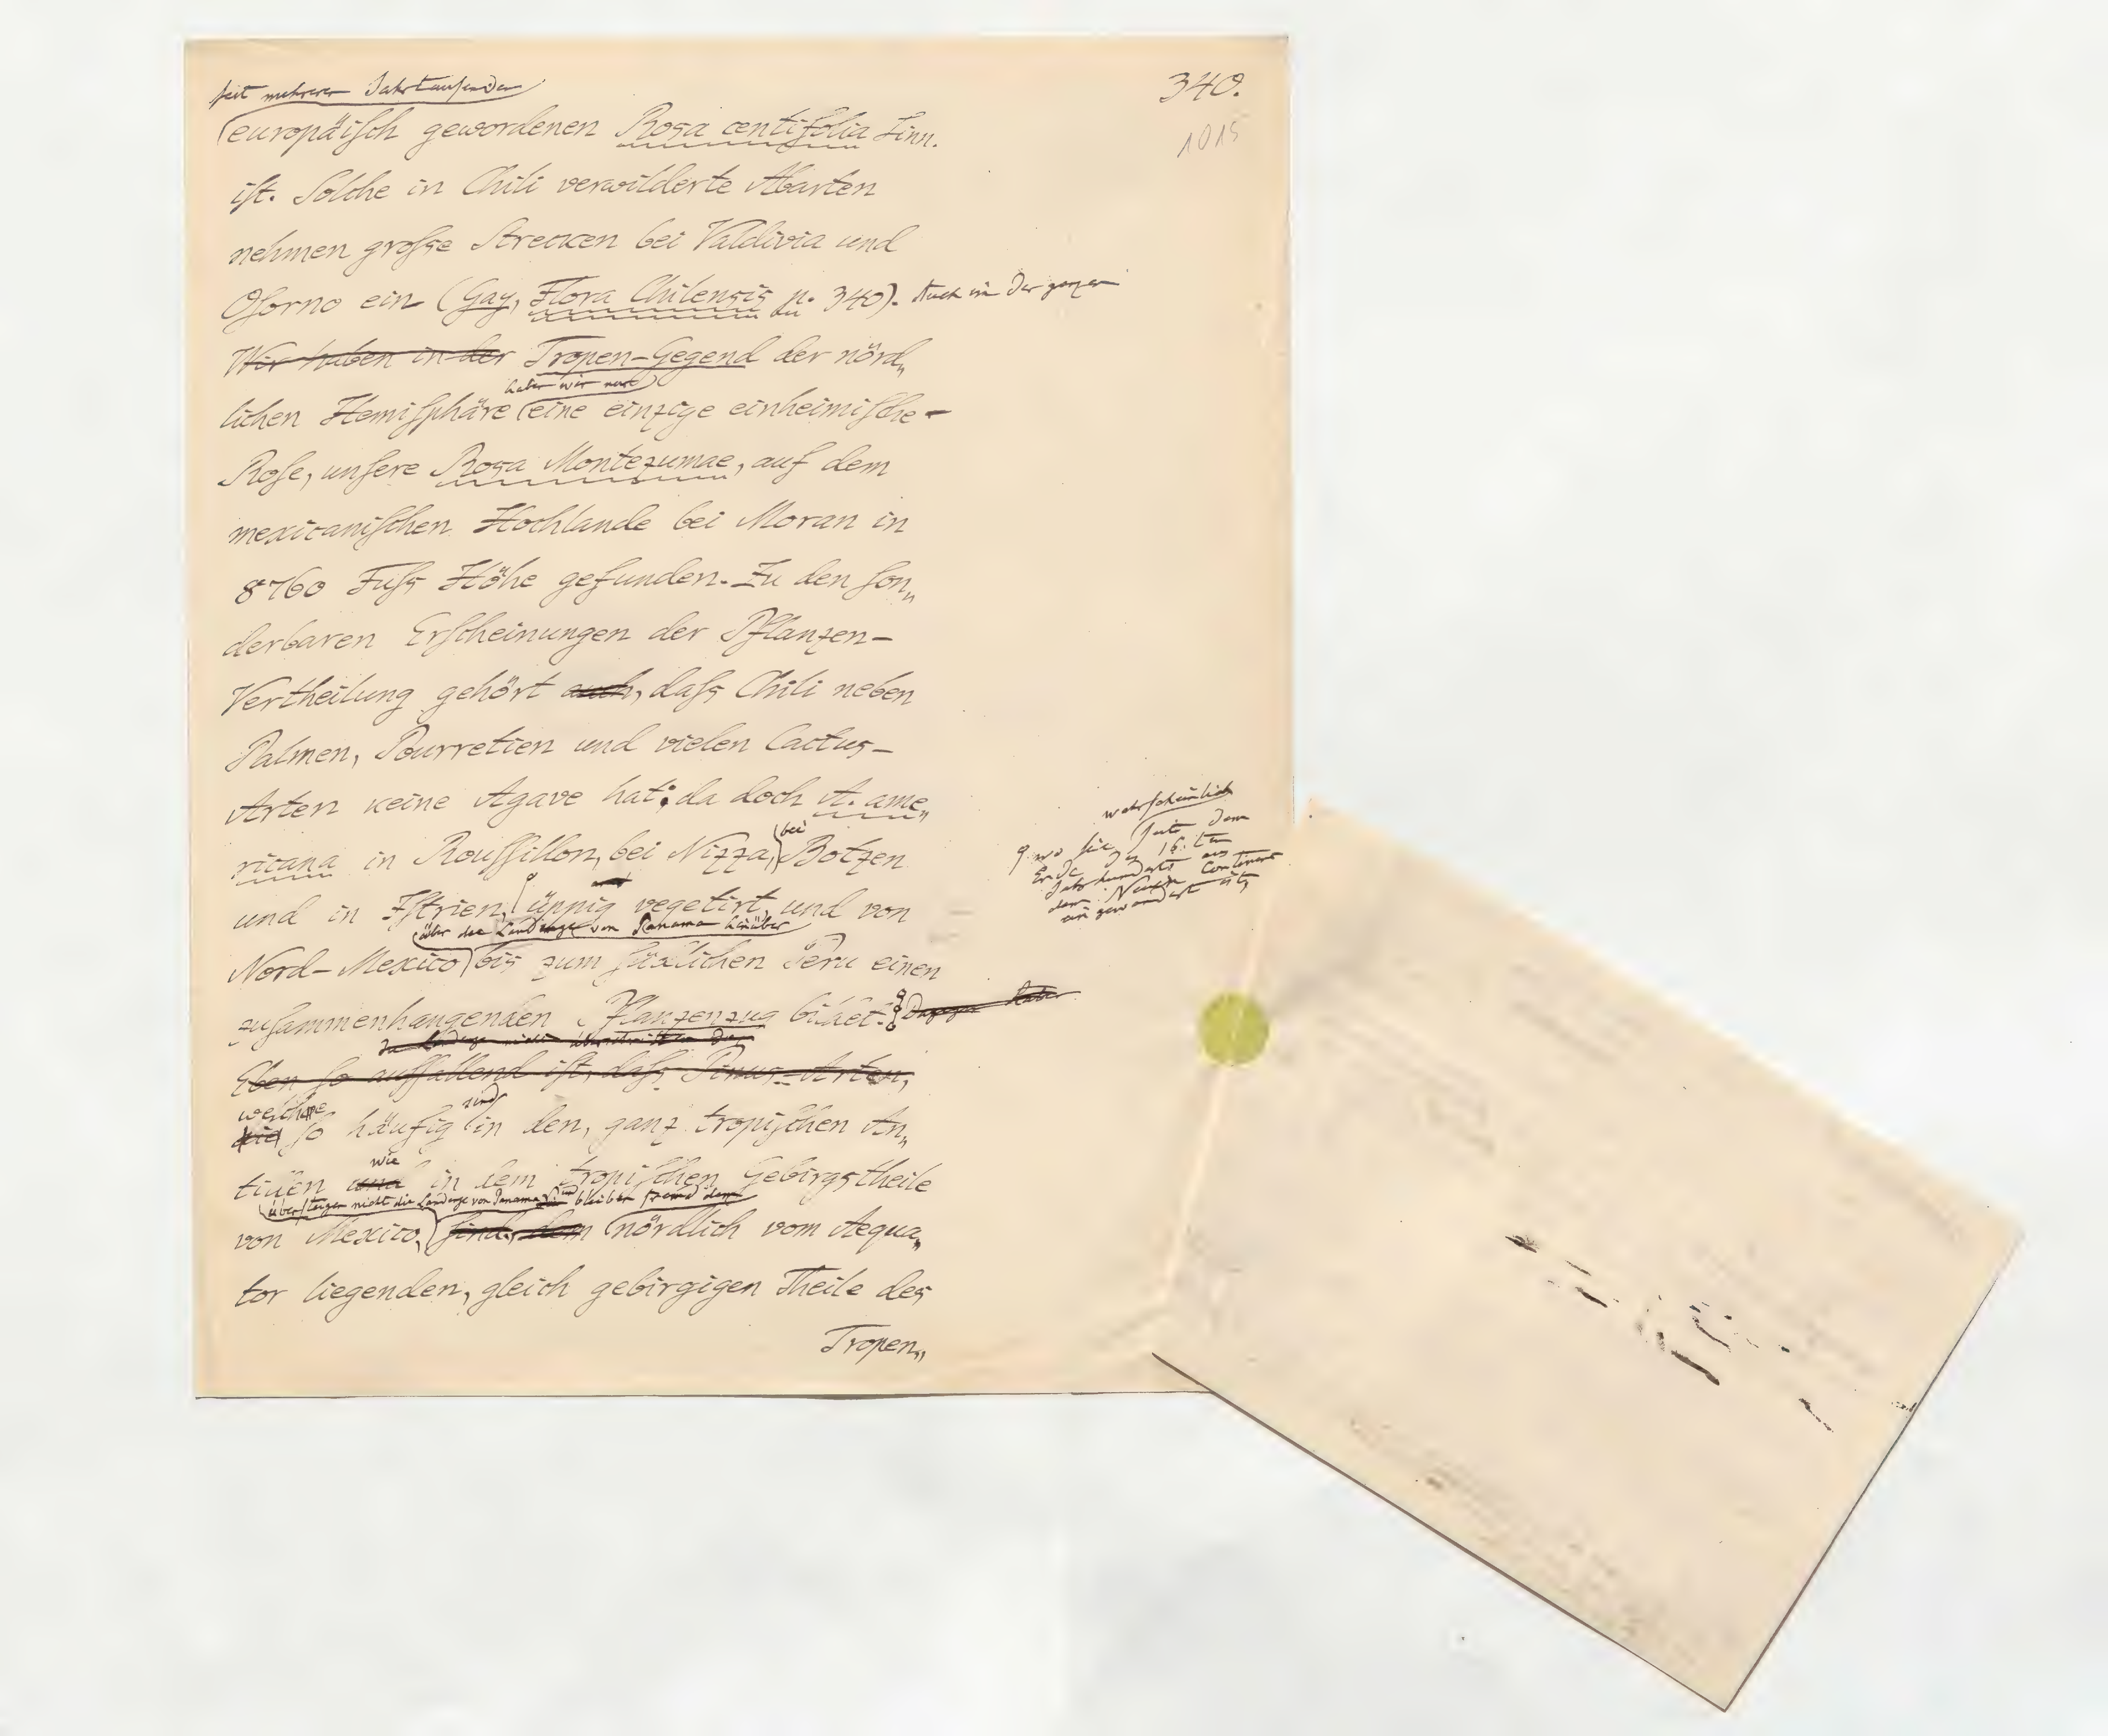 seit mehreren Jahrtausenden
340.
1015
europäisch gewordenen Rosa centifolia Linn.
ist. Solche in Chili verwilderte Abarten
nehmen grosse Strecken bei Valdivia und
Osorno ein (Gay, Flora Chilensis p. 340). Auch in der ganzen
Wir haben in der Tropen-Gegend der nörd„
haben wir nur
lichen Hemisphäre eine einzige einheimische-
Rose, unsere Rosa Montezumae, auf dem
mexicanischen Hochlande bei Moran in
8760 Fuss Höhe gefunden. Zu den son„
derbaren Erscheinungen der Pflanzen-
Vertheilung gehört auch, dass Chili neben
Palmen, Pourretien und vielen Cactus-
Arten keine Agave hat; da doch A. ame„
bei
ricana in Roussillon, bei Nizza, Botzen
und in Istrien, üppig vegetirt, und von
wahrscheinlich
wo sie seit dem
Ende des 16.ten
Jahrhunderts aus
dem Neuen Continent
eingewandert ist,
über die Landenge von Panama hinüber
Nord-Mexico bis zum südlichen Peru einen
zusammenhangenden Pflanzenzug bildet. Dagegen
die Landenge nicht überschritten
Eben so auffallend ist, dass Pinus-Arten,
welche sind
die so häufig in den, ganz tropischen An„
wie
tillen und in dem tropischen Gebirgstheile
übersteigen nicht die Landenge von Panama und bleiben fremd dem
von Mexico, sind, dem nördlich vom Aequa„
tor liegenden, gleich gebirgigen Theile des
Tropen„